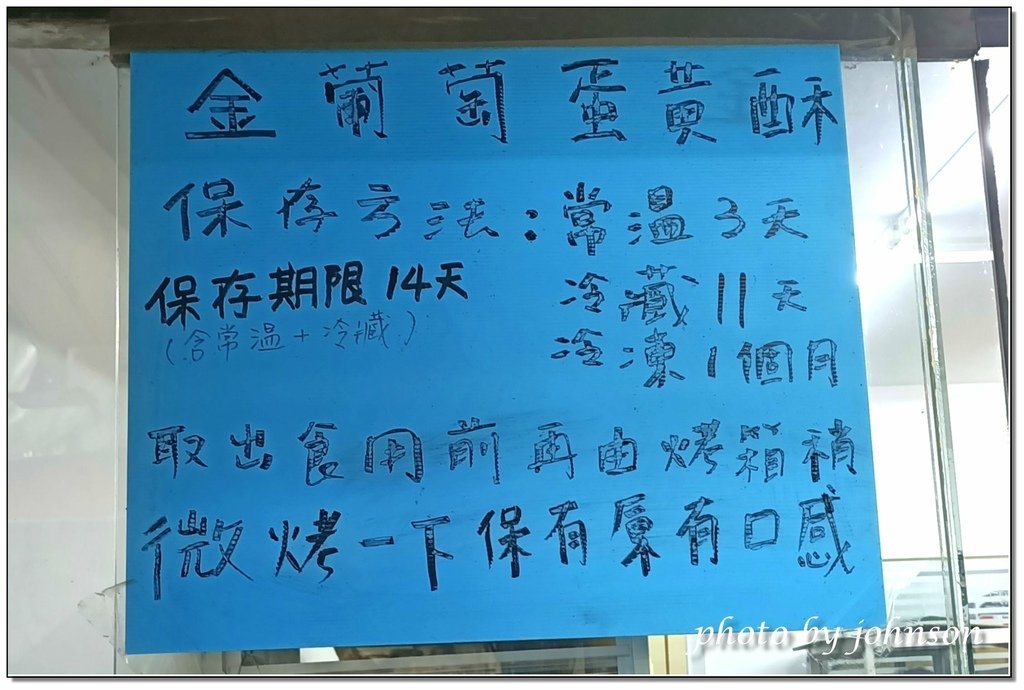 金葡萄蛋黃酥
保存方法：常溫3天
保存期限14天
(含常溫+冷藏)
冷藏11天
冷凍1個月
取出食用前再由烤箱稍
微烤一下保有原有口感
photo by johnson